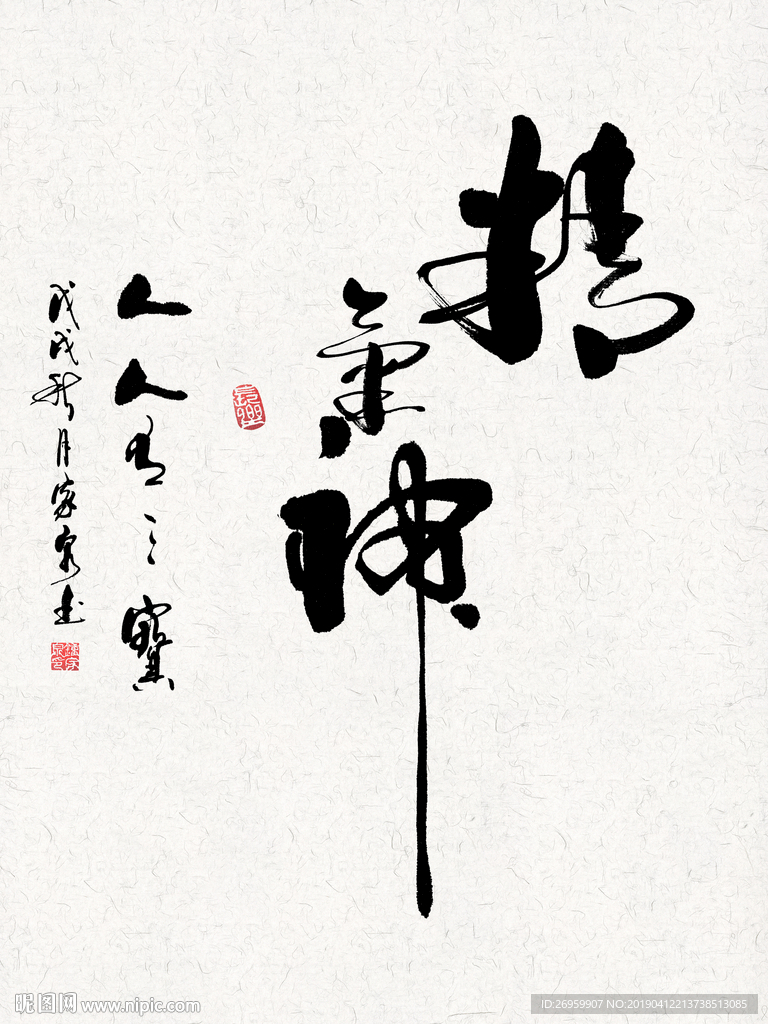 精
氣
神
人人有三寶
戊戌秋月家泉書
長樂
昵图网 www.nipic.com
ID:26959907 NO:20190412213738513085